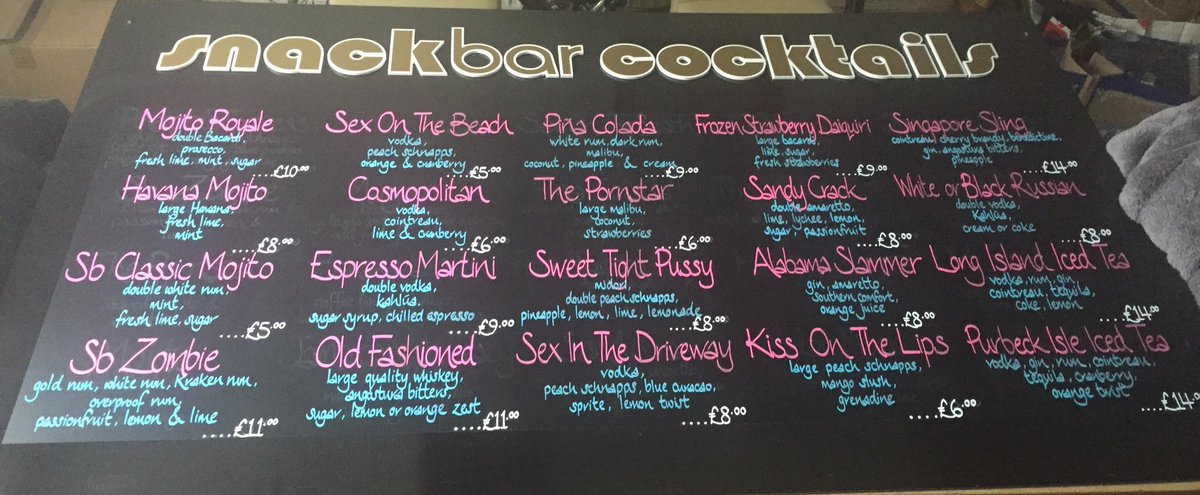 snackbar cocktails
Mojito Royale
double Bacardi,
prosecco,
fresh lime, mint, sugar
....£10.00
Sex On The Beach
vodka,
peach schnapps,
orange & cranberry
....£5.00
Piña Colada
white rum, dark rum,
malibu,
coconut, pineapple & cream
....£9.00
Frozen Strawberry Daiquiri
large bacardi,
lime, sugar,
fresh strawberries
....£9.00
Singapore Sling
cointreau, cherry brandy, benedictine,
gin, angostura bitters,
pineapple
....£14.00
Havana Mojito
large Havana,
fresh lime,
mint
....£8.00
Cosmopolitan
vodka,
cointreau,
lime & cranberry
....£6.00
The Pornstar
large malibu,
coconut,
strawberries
....£6.00
Sandy Crack
double amaretto,
lime, lychee, lemon,
sugar, passionfruit
....£8.00
White or Black Russian
double vodka,
Kahlua,
cream or coke
....£8.00
Sb Classic Mojito
double white rum,
mint,
fresh lime, sugar
....£5.00
Espresso Martini
double vodka,
Kahlua,
sugar syrup, chilled espresso
....£9.00
Sweet Tight Pussy
midori,
double peach schnapps,
pineapple, lemon, lime, lemonade
....£8.00
Alabama Slammer
gin, amaretto,
southern comfort,
orange juice
....£8.00
Long Island Iced Tea
vodka, rum, gin,
cointreau, tequila,
coke, lemon
....£14.00
Sb Zombie
gold rum, white rum, Kraken rum,
overproof rum,
passionfruit, lemon & lime
....£11.00
Old Fashioned
large quality whiskey,
angustura bitters,
sugar, lemon or orange zest
....£11.00
Sex In The Driveway
vodka,
peach schnapps, blue curacao,
sprite, lemon twist
....£8.00
Kiss On The Lips
large peach schnapps,
mango slush,
grenadine
....£6.00
Purbeck Isle Iced Tea
vodka, gin, rum, cointreau,
tequila, cranberry,
orange twist
....£14.00